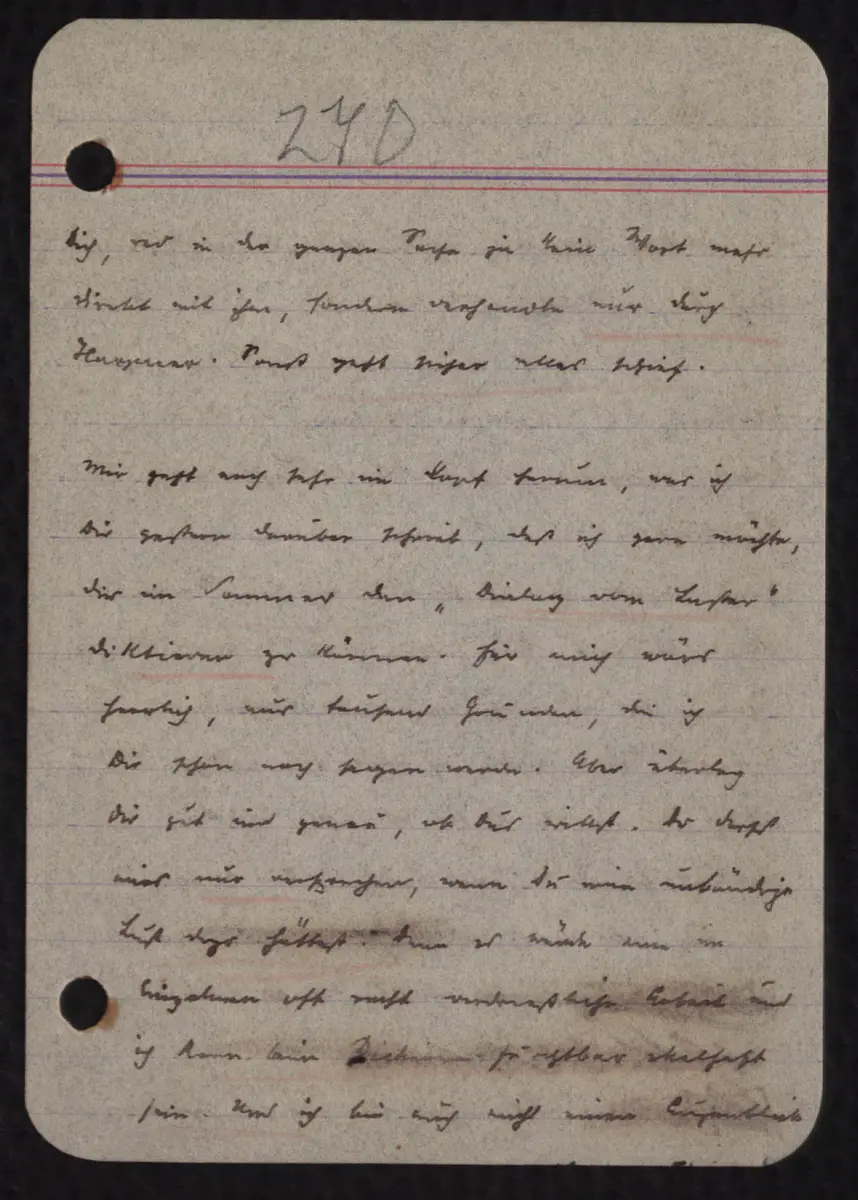 240
Dich, red in der ganzen Sache ja kein Wort mehr
direkt mit ihm, sondern verhandle nur durch
Sonst geht sicher alles schief.
Mir geht noch sehr im Kopf herum, was ich
Dir gestern darüber schrieb, daß ich gern möchte,
dir im Sommer den „Dialog vom Laster"
diktieren zu können. Für mich wärs
herrlich, aus tausend Gründen, die ich
Dir schon noch sagen werde. Aber überleg
Dir gut und genau, ob Dus willst. Du darfst
mirs nur versprechen, wenn Du eine unbändige
Lust dazu hättest. Denn es würde eine im
Einzelnen oft recht verdrießliche Arbeit und
ich kann beim Dictieren furchtbar ekelhaft
sein. Und ich bin auch nicht einen Augenblick